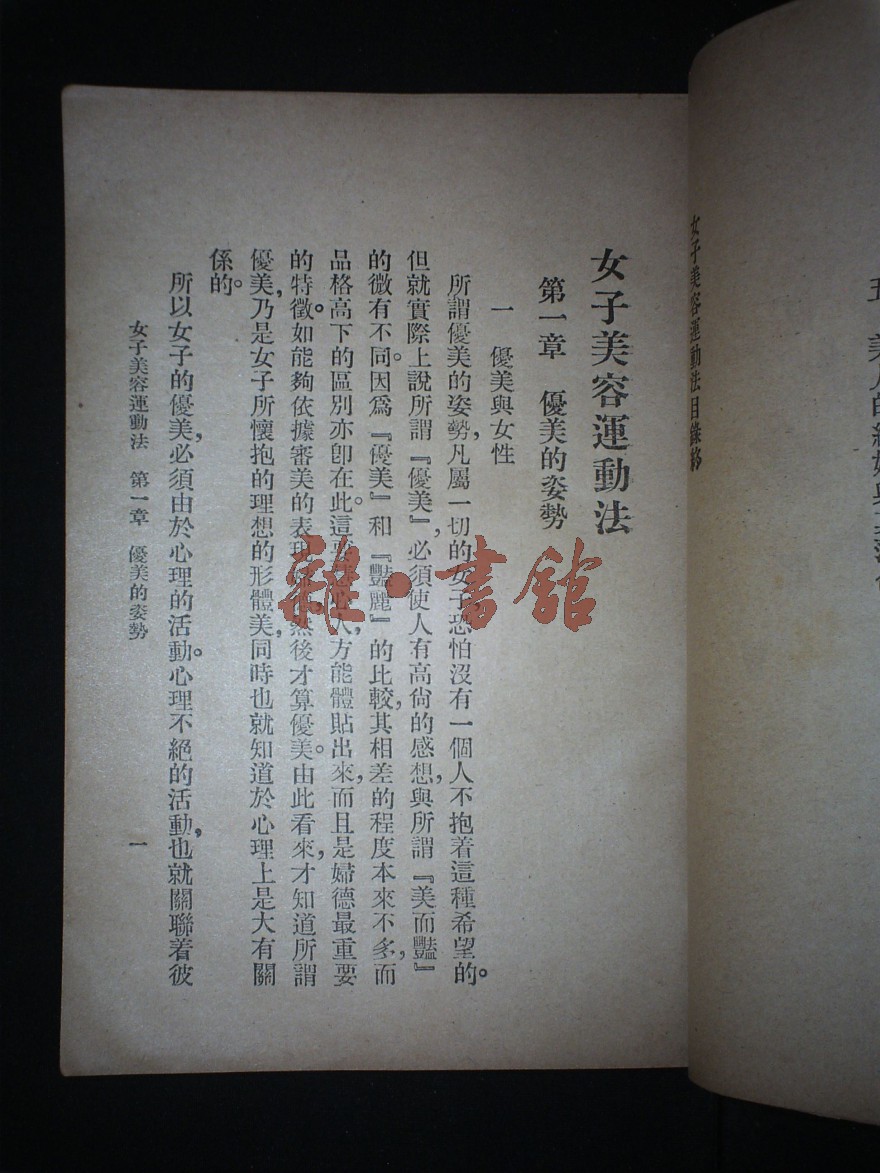 五 美人的
女子美容運動法目錄終
女子美容運動法
第一章 優美的姿勢
一 優美與女性
所謂優美的姿勢,凡屬一切的女子,恐怕沒有一個人不抱着這種希望的。
但就實際上說所謂『優美』,必須使人有高尙的感想,與所謂『美而豔』
的微有不同。因爲『優美』和『豔麗』的比較,其相差的程度本來不多,而
品格高下的區別亦卽在此。這要 人,方能體貼出來,而且是婦德最重要
的特徵。如能夠依據審美的表現 然後才算優美。由此看來,才知道所謂
優美,乃是女子所懷抱的理想的形體美,同時也就知道於心理上是大有關
係的。
所以女子的優美,必須由於心理的活動。心理不絕的活動,也就關聯着彼
女子美容運動法 第一章 優美的姿勢
一
雜·書館